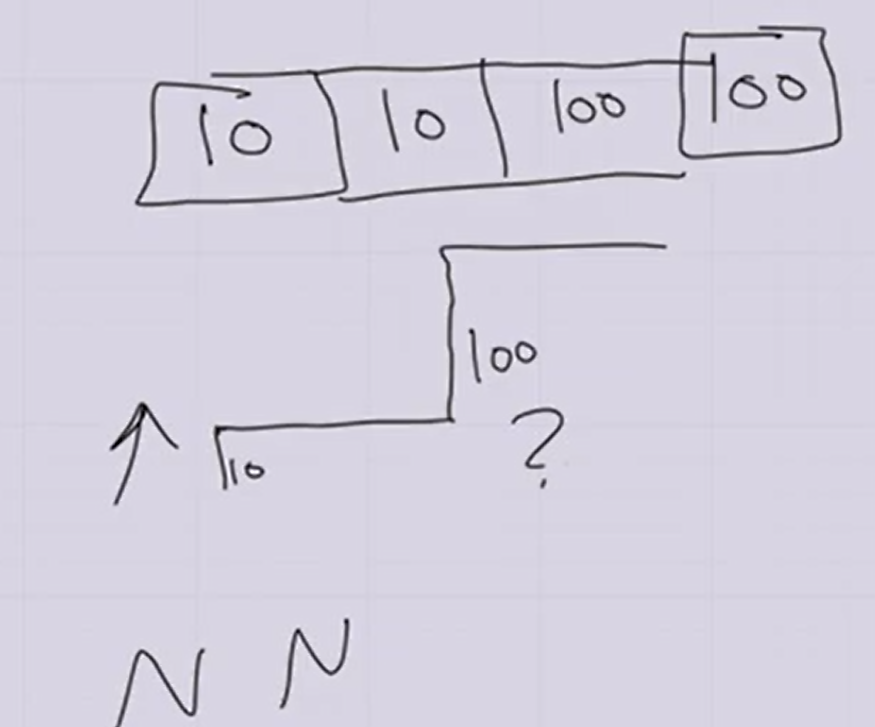 10 10 100 100
100
?
10
N N